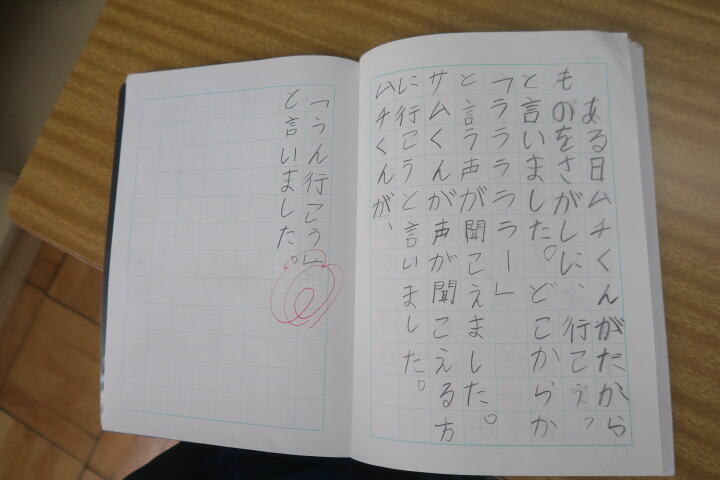 ある日ムチくんがたから
ものをさがしに、行こう」
と言いました。どこからか
「ラララララー」
と言う声が聞こえました。
サムくんが声が聞こえる方
に行こうと言いました。
ムチくんが、
「うん行こう」
と言いました。